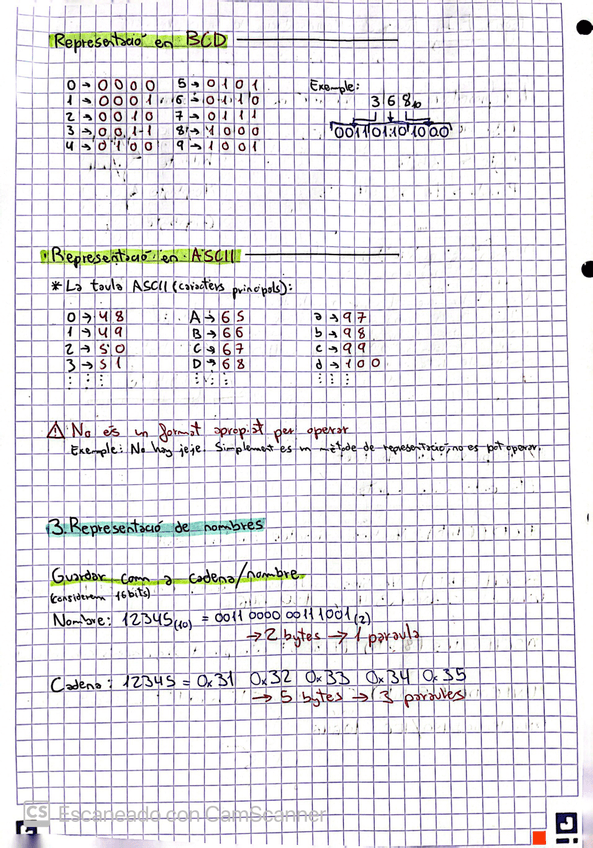 Representació en BCD
0 → 0000 5 → 0101 Exemple:
1 → 0001 6 → 0110 368₁₀
2 → 0010 7 → 0111
3 → 0011 8 → 1000 0011 0110 1000
4 → 0100 9 → 1001
Representació en ASCII
* La taula ASCII (caràcters principals):
0 → 48 A → 65 a → 97
1 → 49 B → 66 b → 98
2 → 50 C → 67 c → 99
3 → 51 D → 68 d → 100
⋮ ⋮ ⋮ ⋮ ⋮ ⋮ ⋮ ⋮ ⋮
⚠ No és un format apropiat per operar
Exemple: No hay jeje. Simplement es un mètode de representació, no es pot operar.
3. Representació de nombres
Guardar com a cadena/nombre
(considerem 16bits)
Nombre: 12345(10) = 0011 0000 00111001(2)
→ 2 bytes → 1 paraula
Cadena: 12345 = 0x31 0x32 0x33 0x34 0x35
→ 5 bytes → 3 paraules
CS Escaneado con CamScanner